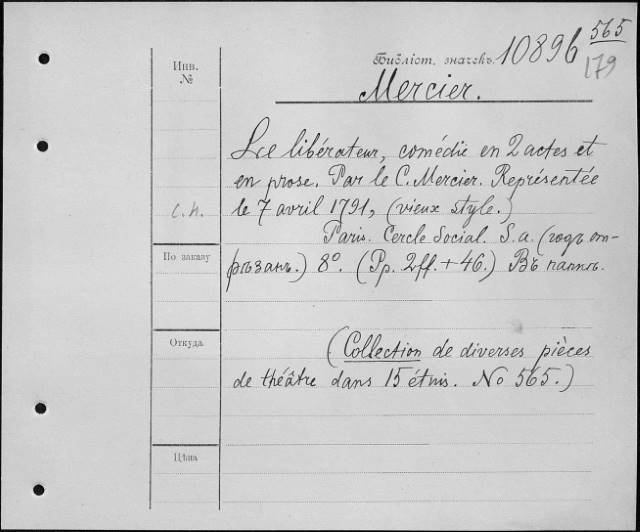 565
Библіот. значекъ. 10896 179
Инв.
№
Mercier.
Le libérateur, comédie en 2 actes et
en prose. Par le C. Mercier. Représentée
с.н. le 7 avril 1791, (vieux style.)
Paris. Cercle Social. S.a. (годъ от-
По заказу
рѣзанъ.) 8°. (Pp. 2ff. + 46.) Въ папкѣ.
Откуда
(Collection de diverses pièces
de théâtre dans 15 étuis. No 565.)
Цѣна